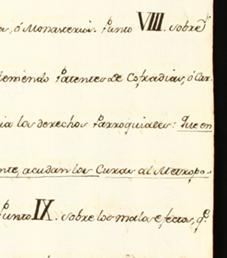 , ó Monasterios. Punto VIII. sobre
temiendo Patentes de Cofradias, ó Car
ia los derechos Parroquiales: que en
nte, acudan los Curas al Metropo-
Punto IX. sobre los malos efectos, qe